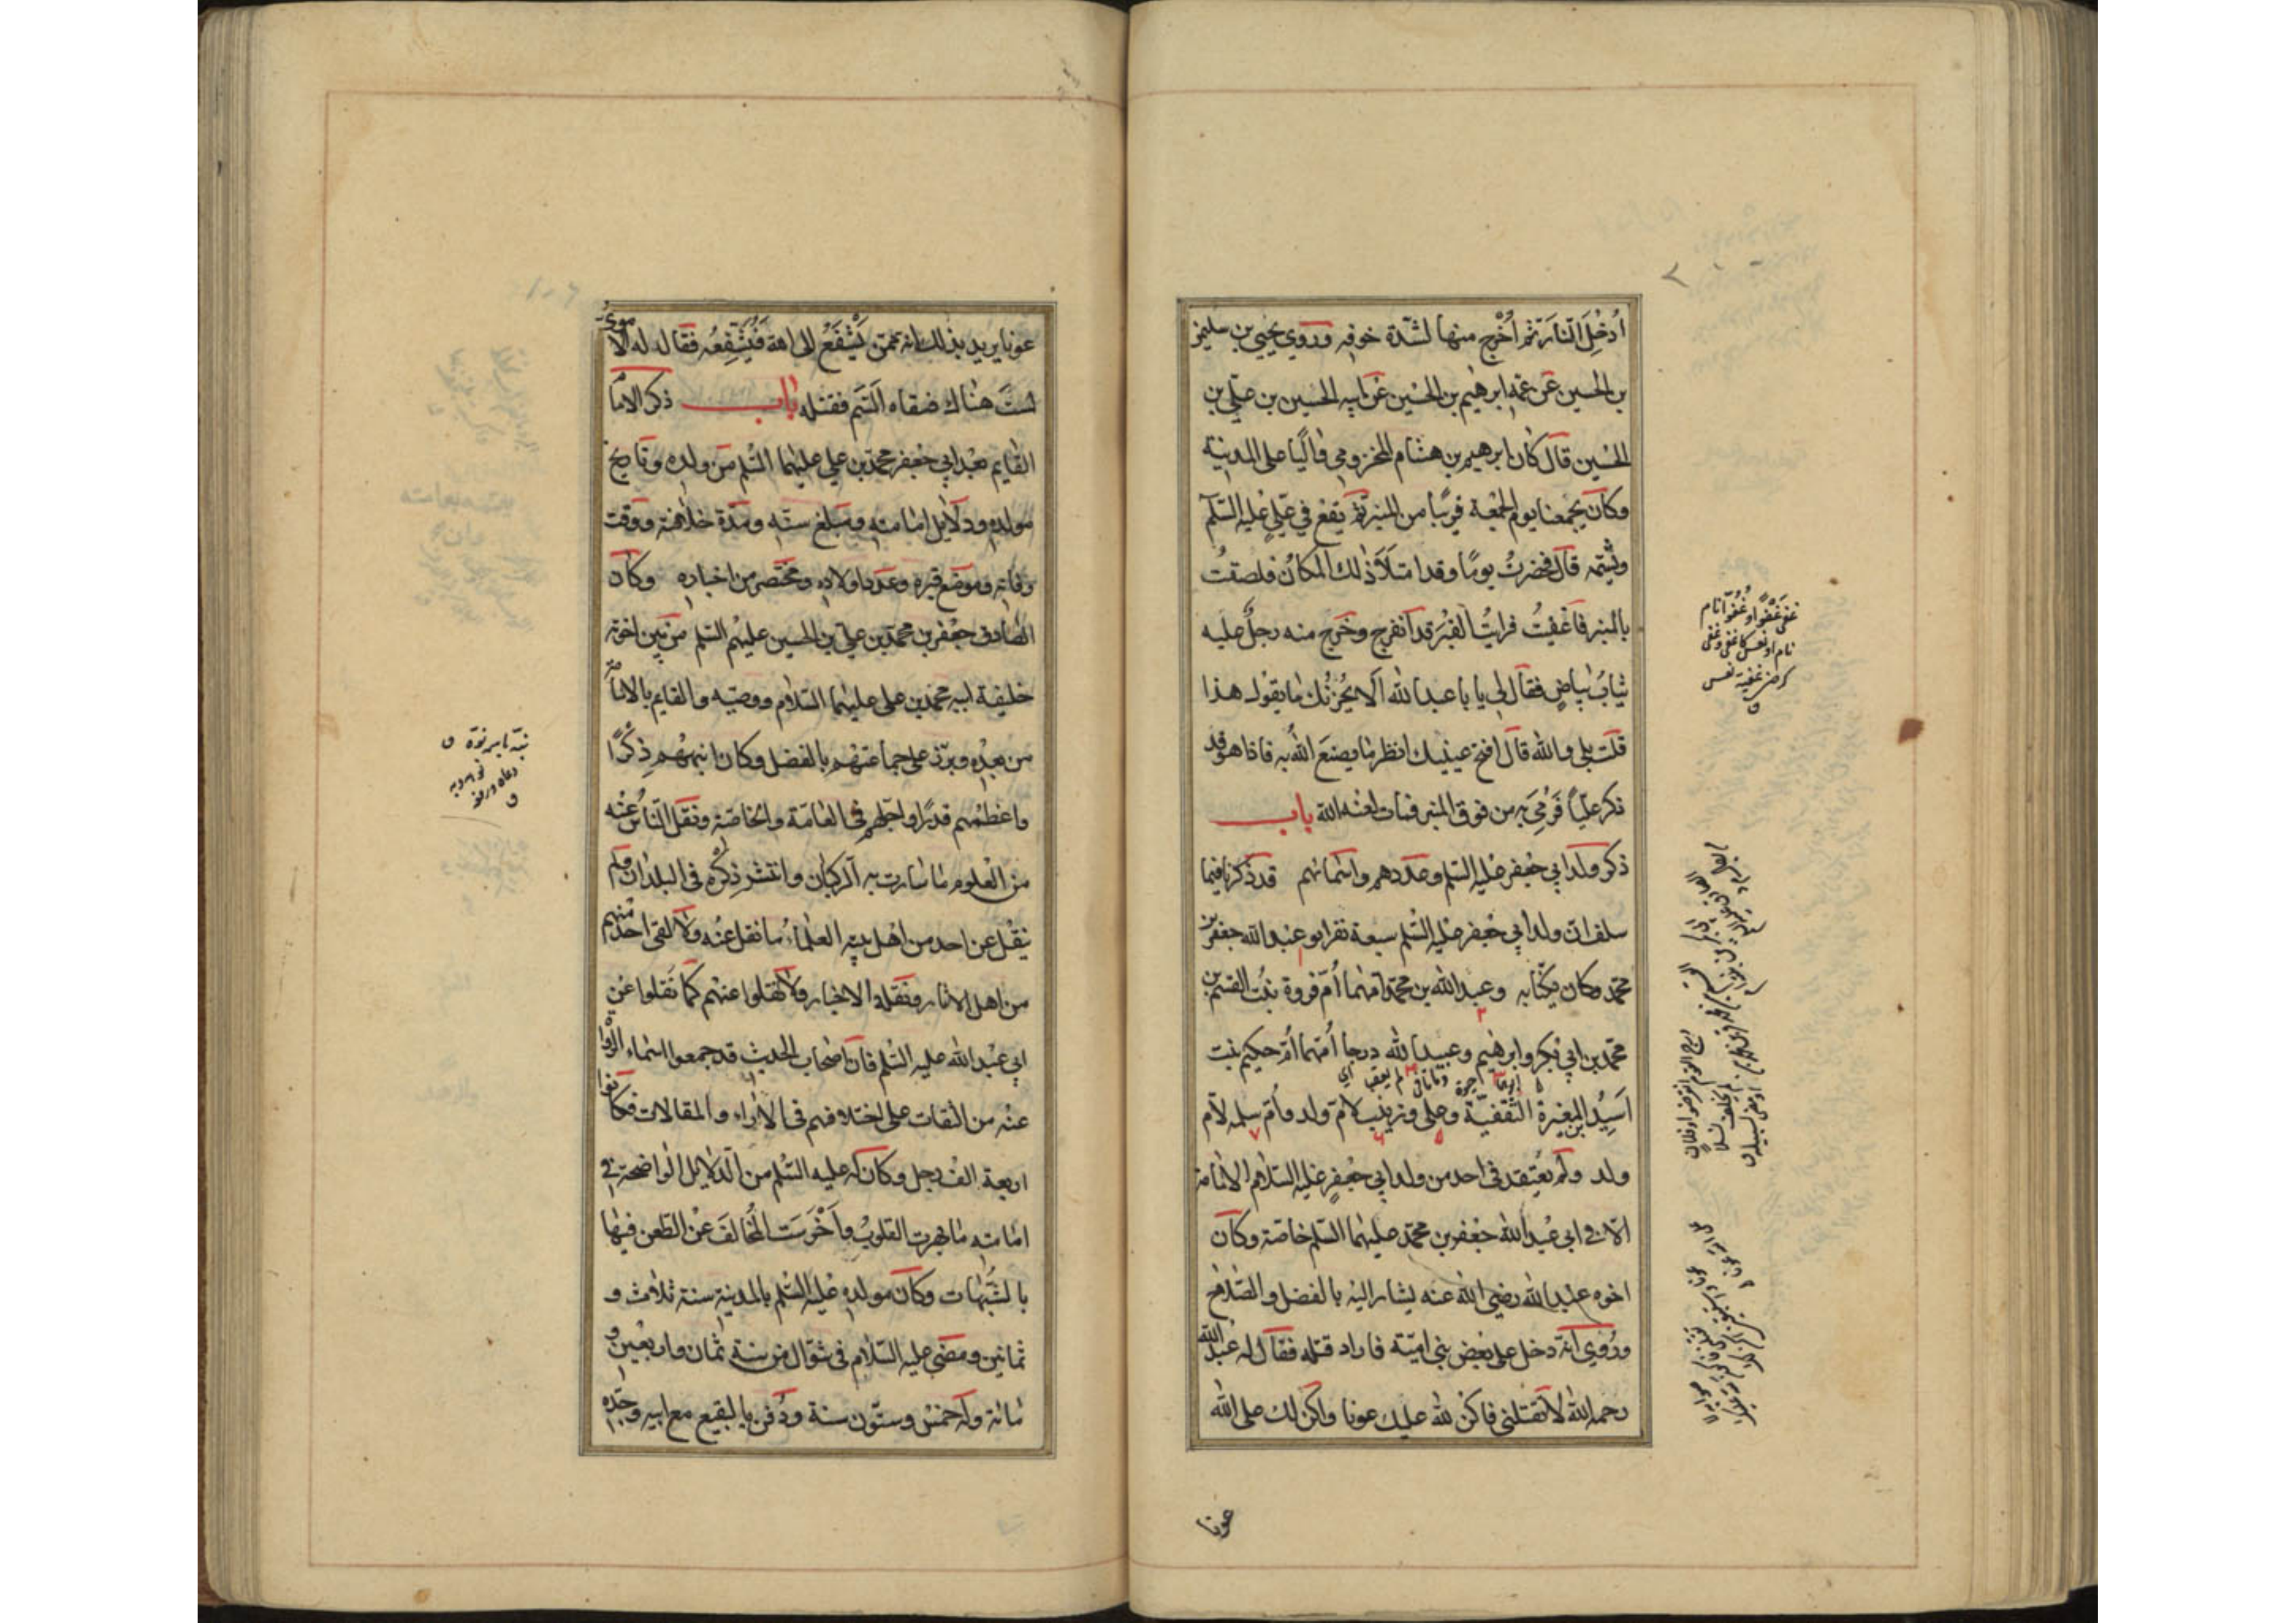 ادخل النار ثم اخرج منها لشدة خوفه وروي يحيى بن سليمن
بن الحسين عن عمه ابرهيم بن الحسين عن ابيه الحسين بن علي بن
الحسين قال كان ابرهيم بن هشام المخزومي واليا على المدينة
وكان يجمعنا يوم الجمعة قريبا من المنبر ثم يقع في علي عليه السلم
ويشتمه قال فحضرت يوما وقد امتلا ذلك المكان فلصقت
بالمنبر فاغفيت فرايت القبر قد انفرج وخرج منه رجل عليه
ثياب بياض فقال لي يا با عبد الله الا يحزنك ما يقول هذا
قلت بلى والله قال افتح عينيك انظر ما يصنع الله به فاذا هو قد
ذكر عليا فرمي به من فوق المنبر فمات لعنه الله باب
ذكر ولد ابي جعفر عليه السلم وعددهم واسمائهم قد ذكرنا فيما
سلف ان ولد ابي جعفر عليه السلم سبعة نفر ابو عبد الله جعفر بن
محمد وكان يكنا به وعبد الله بن محمد امهما ام فروة بنت القسم بن
محمد بن ابي بكر وابرهيم وعبيد الله درجا امهما ام حكيم بنت
اسيد بن المغيرة الثقفية وعلي وزينب لام ولد وام سلمه لام
ولد ولم يعتقد في احد من ولد ابي جعفر عليه السلام الامامة
الا في ابي عبد الله جعفر بن محمد عليهما السلم خاصة وكان
اخوه عبد الله رضي الله عنه يشار اليه بالفضل والصلاح
وروي انه دخل على بعض بني امية فاراد قتله فقال له عبد الله
رحمه الله لا تقتلني فاكن لله عليك عونا واكن لك على الله
عونا
عونا يريد بذلك انه ممن يشفع الى الله فيشفعه فقال له الاموي
لست هناك فسقاه السم فقتله باب ذكر الامام
القايم بعد ابي جعفر محمد بن علي عليهما السلم من ولده وتاريخ
مولده ودلايل امامته ومبلغ سنه ومدة خلافته ووقت
وفاته وموضع قبره وعدد اولاده ومختصر من اخباره وكان
الصادق جعفر بن محمد بن علي بن الحسين عليهم السلم من بين اخوته
خليفة ابيه محمد بن علي عليهما السلام ووصيه والقايم بالامامة
من بعده وبرز على جماعتهم بالفضل وكان انبههم ذكرا
واعظمهم قدرا واجلهم في العامة والخاصة ونقل الناس عنه
من العلوم ما سارت به الركبان وانتشر ذكره في البلدان ولم
ينقل عن احد من اهل بيته العلماء ما نقل عنه ولا لقي احد منهم
من اهل الاثار ونقله الاخبار ولا نقلوا عنهم كما نقلوا عن
ابي عبد الله عليه السلم فان اصحاب الحديث قد جمعوا اسماء الرواة
عنه من الثقات على اختلافهم في الاراء والمقالات فكانوا
اربعة الف رجل وكان له عليه السلم من الدلايل الواضحة في
امامته ما بهرت القلوب واخرست المخالف عن الطعن فيها
بالشبهات وكان مولده عليه السلم بالمدينة سنة ثلاث و
ثمانين ومضى عليه السلام في شوال من سنة ثمان واربعين و
مائة وله خمس وستون سنة ودفن بالبقيع مع ابيه وجده